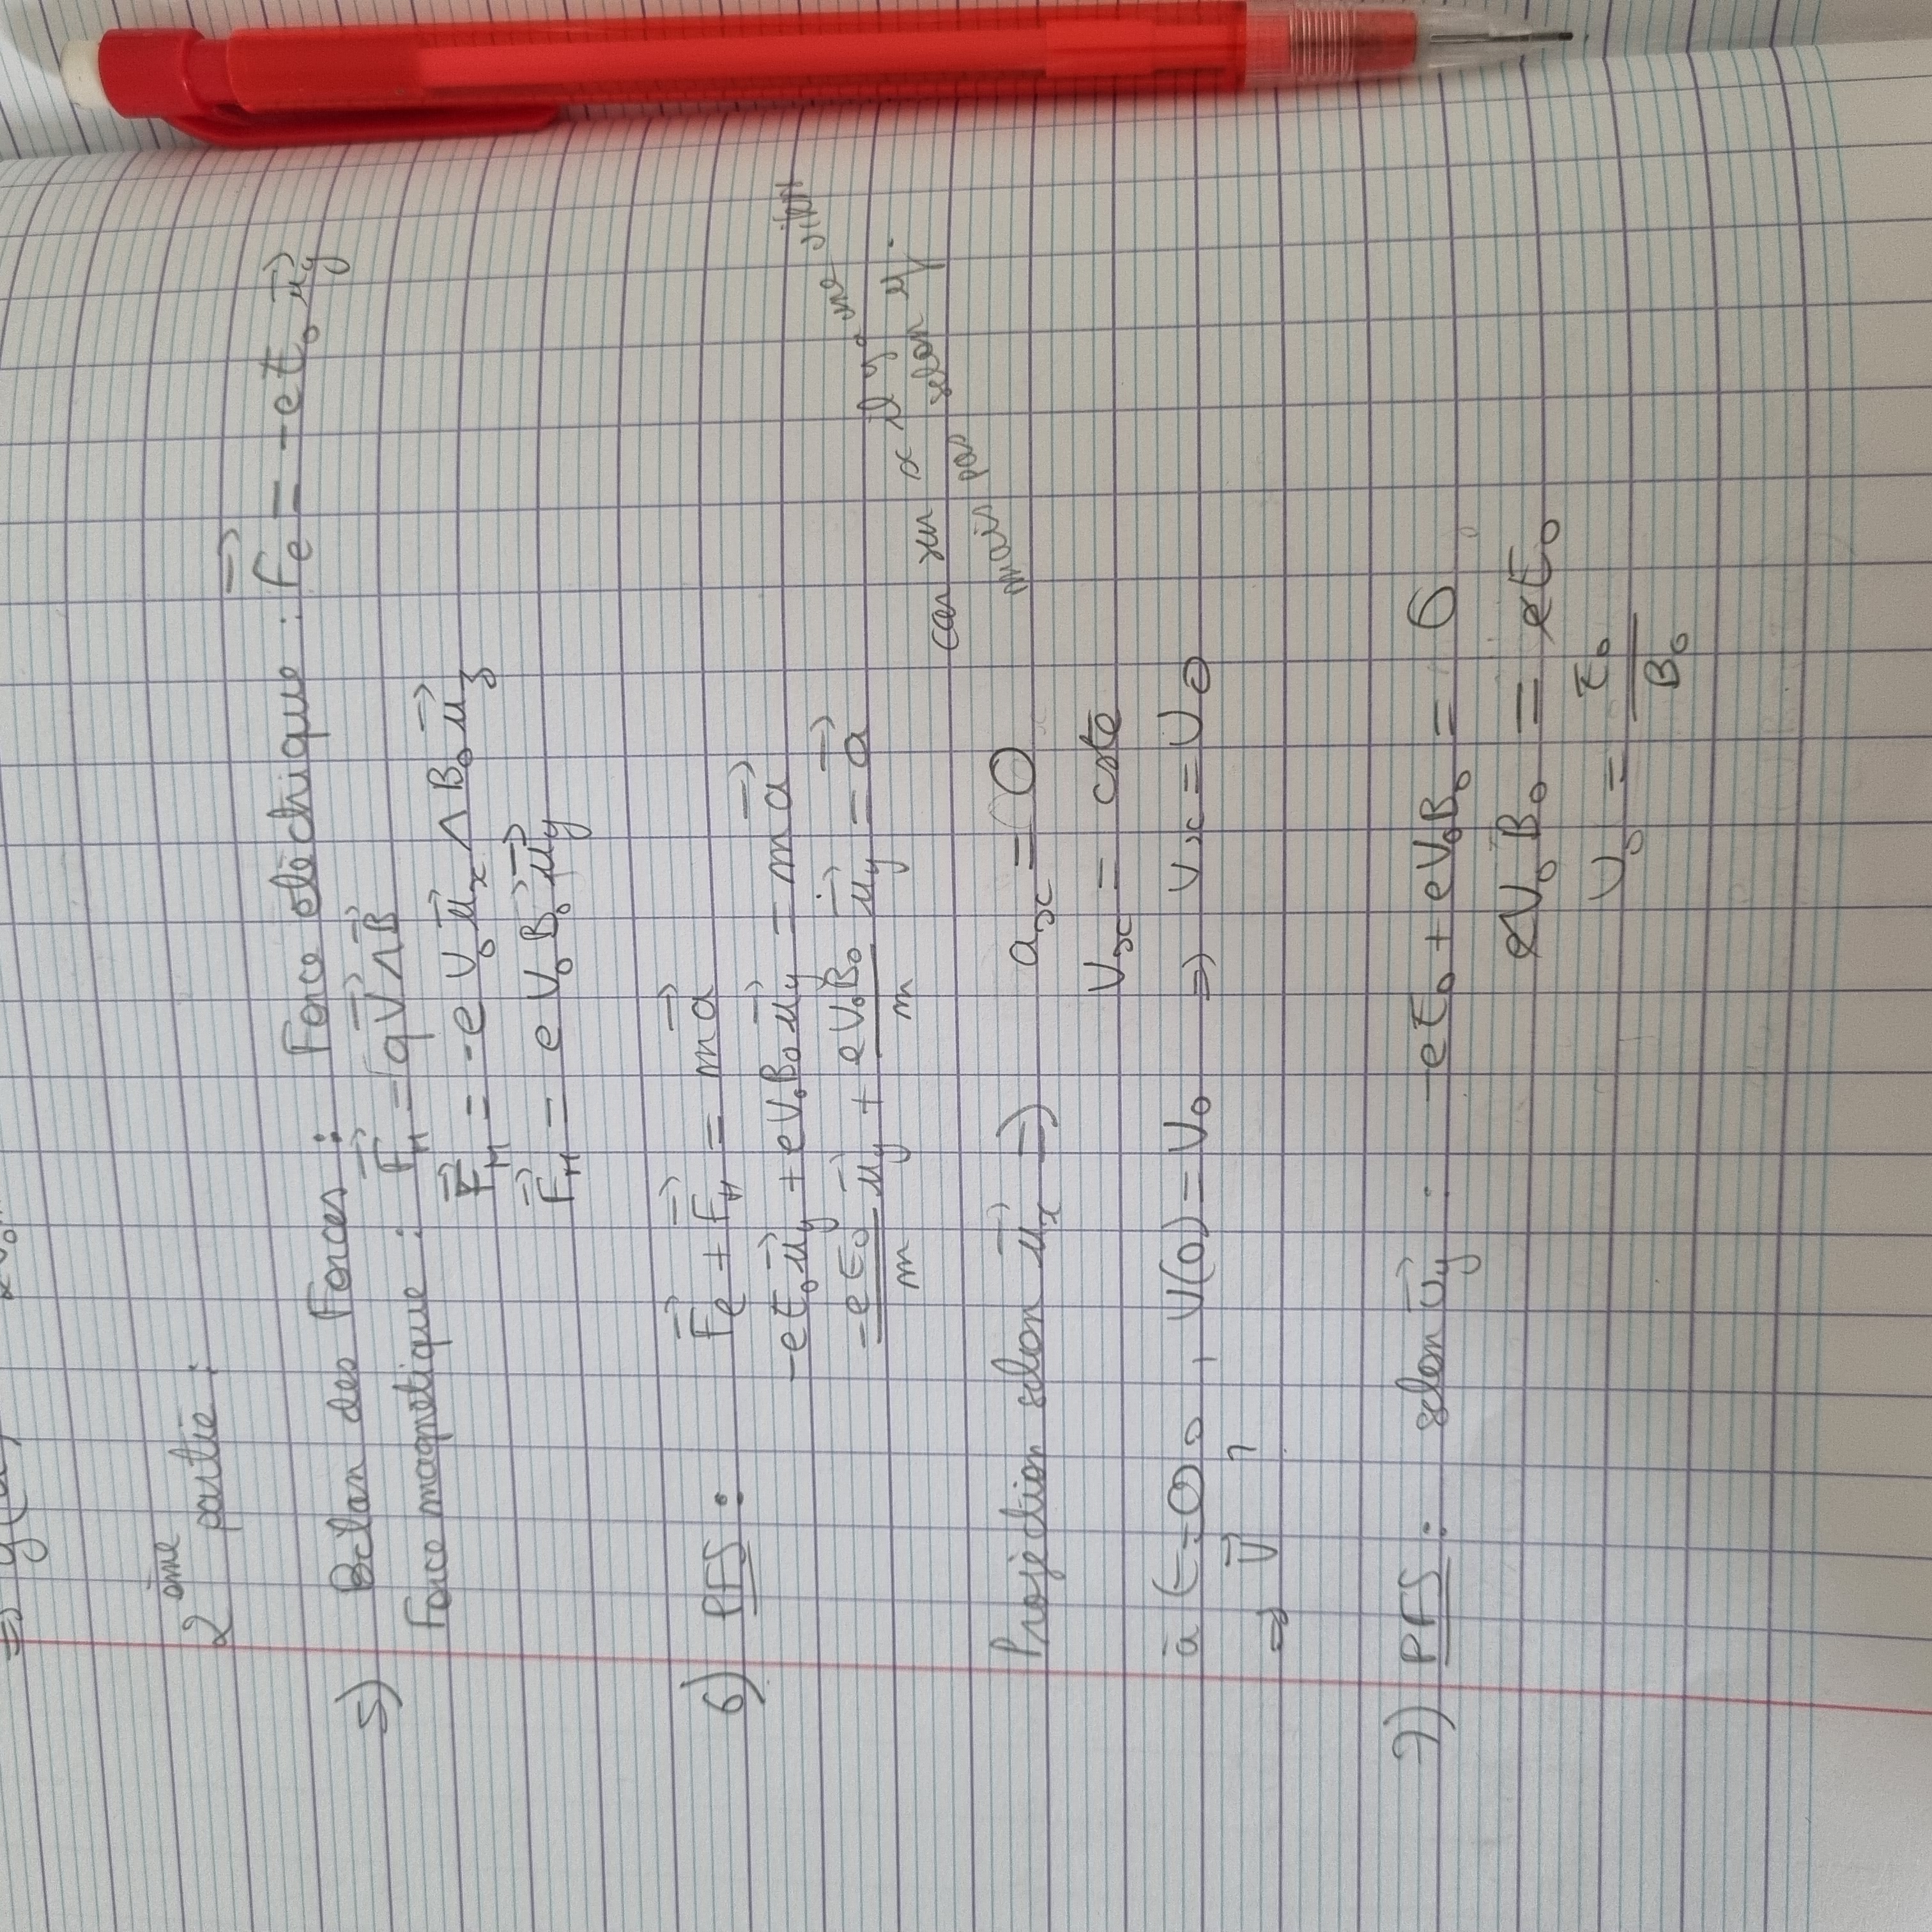 2ème partie :
5) Bilan des Forces : Force électrique : Fe = -eE₀ u⃗y
Force magnétique : F⃗M = qV⃗ ∧ B⃗
F⃗M = -e V₀ u⃗x ∧ B₀ u⃗z
F⃗M = e V₀ B₀ u⃗y
6) PFS : F⃗e + F⃗M = m a⃗
-eE₀ u⃗y + eV₀B₀ u⃗y = m a⃗
-eE₀/m u⃗y + eV₀B₀/m u⃗y = a⃗
car sur x il y a une vitesse
mais pas selon y.
Projection selon u⃗x ⇒ ax = 0
Vx = cste
à t=0, V(0) = V₀ ⇒ Vx = V₀
⇒ V⃗ ?
7) PFS : selon u⃗y : -eE₀ + eV₀B₀ = 0
eV₀B₀ = eE₀
V₀ = E₀/B₀